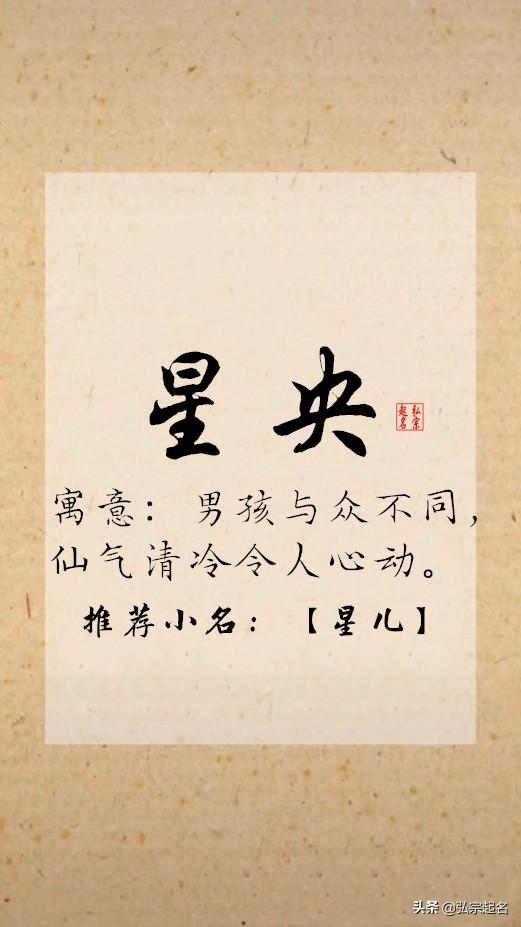 星央
弘宗起名
寓意：男孩与众不同，
仙气清冷令人心动。
推荐小名：【星儿】
头条 @弘宗起名